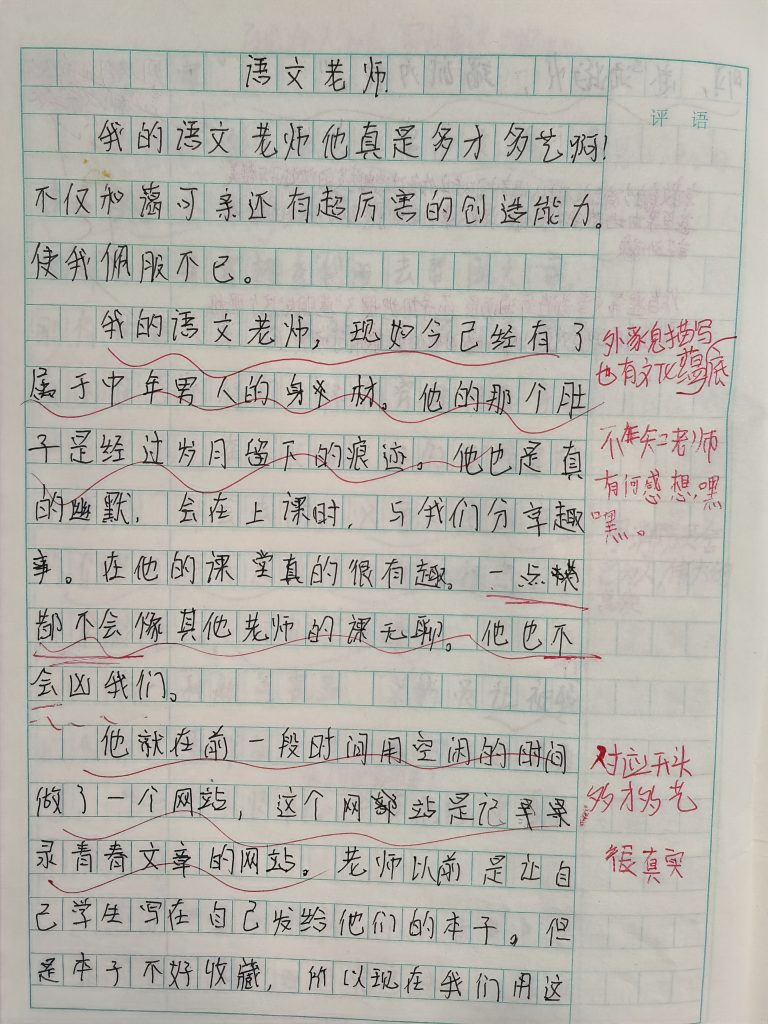 语文老师
评语
我的语文老师他真是多才多艺啊!
不仅和蔼可亲还有超厉害的创造能力。
使我佩服不已。
我的语文老师，现如今已经有了
属于中年男人的身材。他的那个肚
子是经过岁月留下的痕迹。他也是真
的幽默，会在上课时，与我们分享趣
事。在他的课堂真的很有趣。一点
都不会像其他老师的课无聊。他也不
会凶我们。
他就在前一段时间用空闲的时间
做了一个网站，这个网站是记
录青春文章的网站。老师以前是让自
己学生写在自己发给他们的本子。但
是本子不好收藏，所以现在我们用这
外形描写
也有文化蕴底
不知老师
有何感想，嘿
嘿。
对应开头
多才多艺
很真实